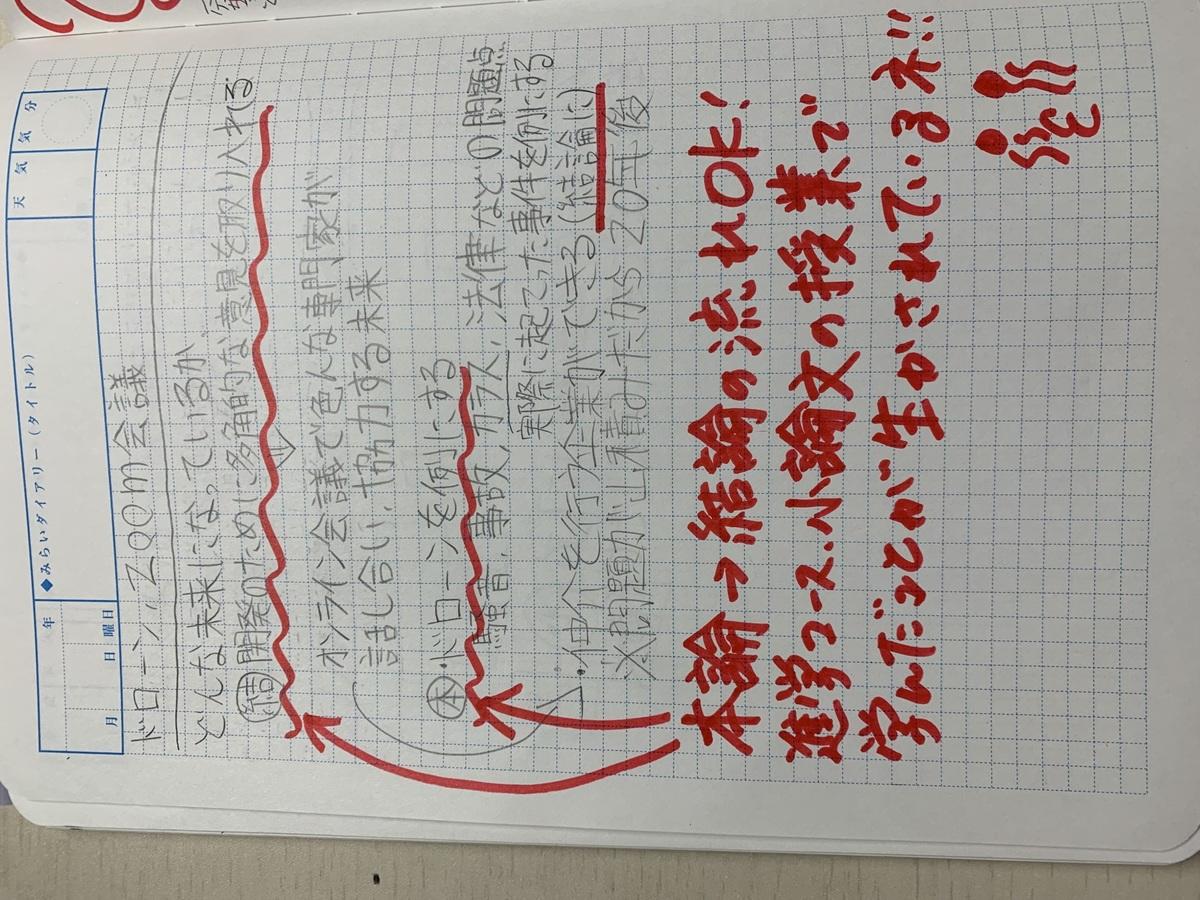 年
◆みらいダイアリー（タイトル）
天気
気分
月 日 曜日
ドローン、Zoom会議
どんな未来になっているか、
結 開発のために多角的な意見を取り入れてる
オンライン会議で色んな専門家が
話し合い、協力する未来
本 ・ドローンを例にする
騒音、事故、ガラス、法律などの問題点
実際に起こった事件を例にする
・仲介を行う企業ができる(結論に)
※問題が山積みだから20年後
本論→結論の流れOK!
進学コース、小論文の授業で
学んだことが生かされているネ!!